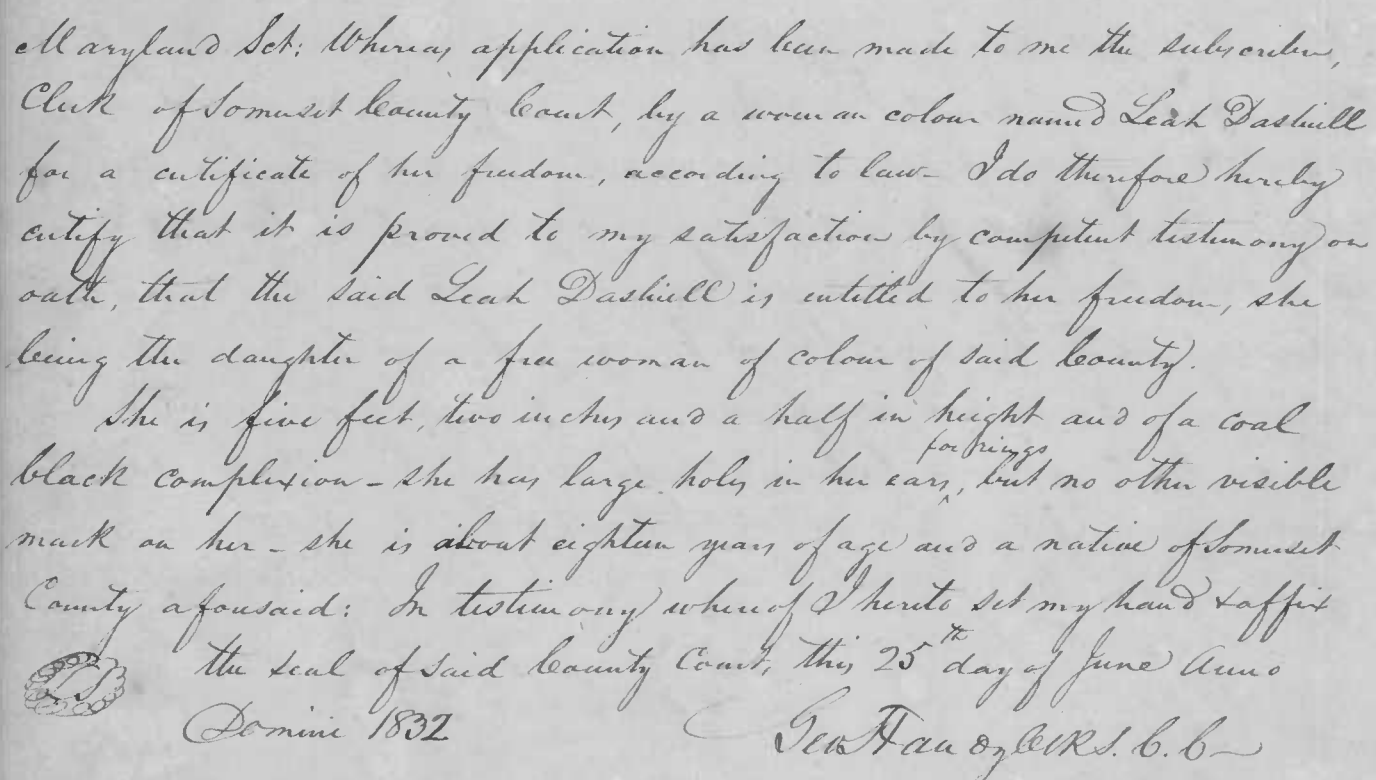 Maryland Sct: Whereas application has been made to me the subscriber,
Clerk of Somerset County Court, by a woman colour named Leah Dashiell
for a certificate of her freedom, according to law - I do therefore hereby
certify that it is proved to my satisfaction by competent testimony on
oath, that the said Leah Dashiell is entitled to her freedom, she
being the daughter of a free woman of colour of said County.
She is five feet, two inches and a half in height and of a coal
for rings
black complexion - she has large holes in her ears, but no other visible
mark on her - she is about eighteen years of age and a native of Somerset
County aforesaid: In testimony whereof I hereto set my hand & affix
the seal of said County Court, this 25th day of June Anno
LS
Domini 1832
Geo Handy Clk S. C. C